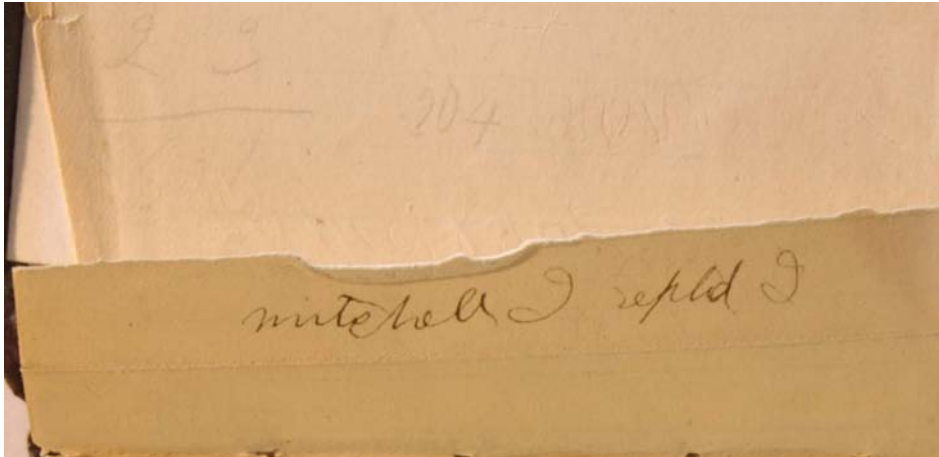 2 9
904
mitchell I repld I